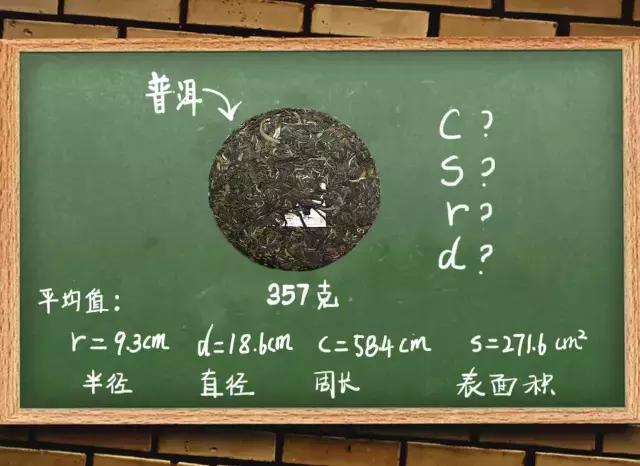 普洱
C?
S?
r?
d?
357克
平均值:
r=9.3cm d=18.6cm c=58.4cm s=271.6cm²
半径 直径 周长 表面积